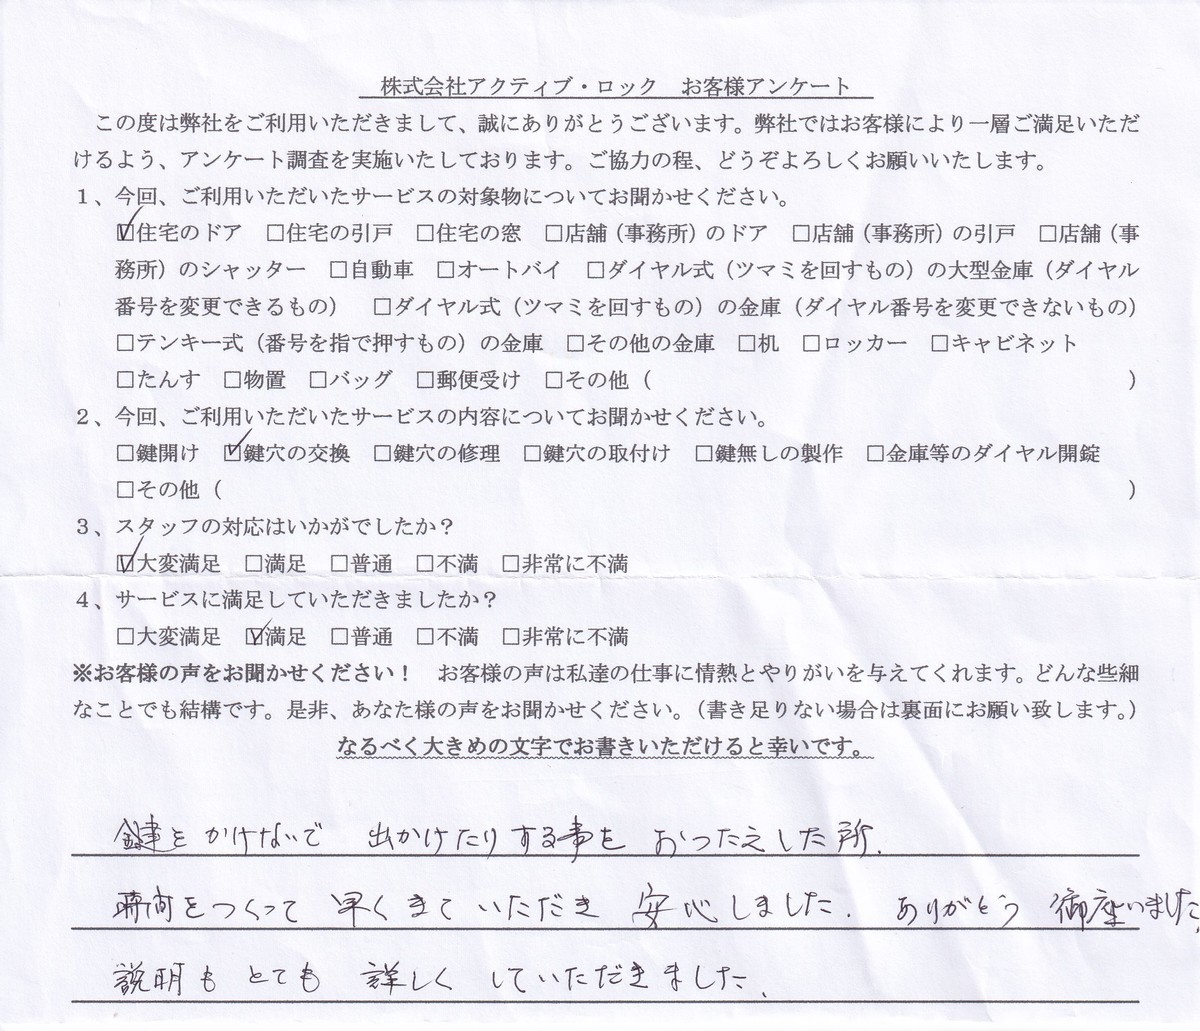 株式会社アクティブ・ロック　お客様アンケート
この度は弊社をご利用いただきまして、誠にありがとうございます。弊社ではお客様により一層ご満足いただ
けるよう、アンケート調査を実施いたしております。ご協力の程、どうぞよろしくお願いいたします。
１、今回、ご利用いただいたサービスの対象物についてお聞かせください。
☑住宅のドア　□住宅の引戸　□住宅の窓　□店舗（事務所）のドア　□店舗（事務所）の引戸　□店舗（事
務所）のシャッター　□自動車　□オートバイ　□ダイヤル式（ツマミを回すもの）の大型金庫（ダイヤル
番号を変更できるもの）　□ダイヤル式（ツマミを回すもの）の金庫（ダイヤル番号を変更できないもの）
□テンキー式（番号を指で押すもの）の金庫　□その他の金庫　□机　□ロッカー　□キャビネット
□たんす　□物置　□バッグ　□郵便受け　□その他（　　　　　）
２、今回、ご利用いただいたサービスの内容についてお聞かせください。
□鍵開け　☑鍵穴の交換　□鍵穴の修理　□鍵穴の取付け　□鍵無しの製作　□金庫等のダイヤル開錠
□その他（　　　　　）
３、スタッフの対応はいかがでしたか？
☑大変満足　□満足　□普通　□不満　□非常に不満
４、サービスに満足していただきましたか？
□大変満足　☑満足　□普通　□不満　□非常に不満
※お客様の声をお聞かせください！　お客様の声は私達の仕事に情熱とやりがいを与えてくれます。どんな些細
なことでも結構です。是非、あなた様の声をお聞かせください。（書き足りない場合は裏面にお願い致します。）
なるべく大きめの文字でお書きいただけると幸いです。
鍵をかけないで　出かけたりする事を　おつたえした所、
時間をつくって　早くきて　いただき　安心しました。ありがとう　御座いました。
説明も　とても　詳しく　していただきました。